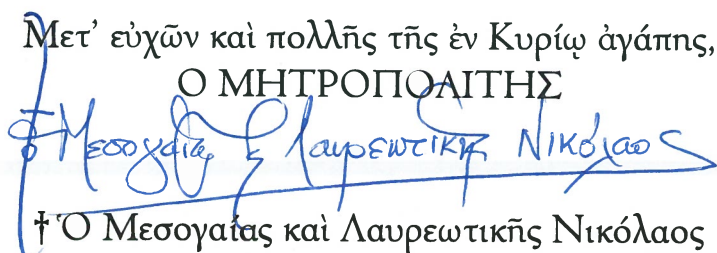 Μετ’ εὐχῶν καὶ πολλῆς τῆς ἐν Κυρίῳ ἀγάπης,
Ο ΜΗΤΡΟΠΟΛΙΤΗΣ
† Μεσογαίας & Λαυρεωτικῆς Νικόλαος
† Ὁ Μεσογαίας καὶ Λαυρεωτικῆς Νικόλαος